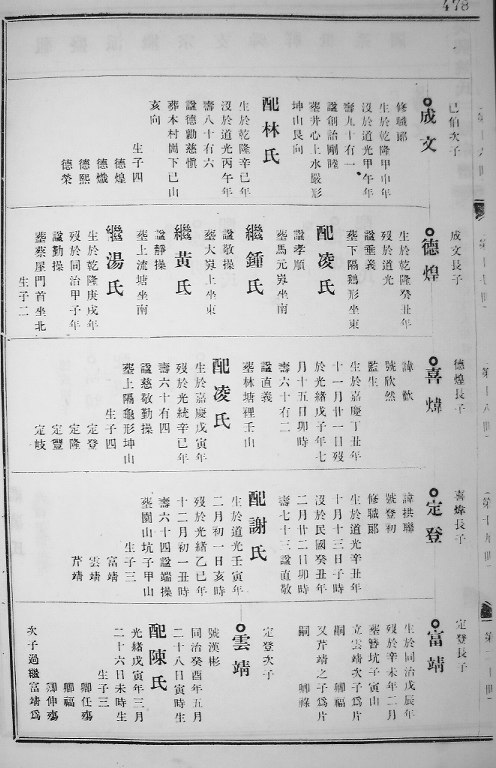 478
已伯次子
成文
修職郎
生於乾隆甲申年
沒於道光甲午年
壽九十有一
諡創治剛睦
葬井心上水嚴形
坤山艮向
配林氏
生於乾隆辛巳年
沒於道光丙午年
壽八十有六
諡德勤慈慎
葬本村圍下巳山
亥向
生子四
德煌
德熾
德熙
德榮
成文長子
德煌
生於乾隆癸丑年
歿於道光
諡垂義
墓下隔鵝形坐東
配凌氏
諡孝順
墓馬元㘭坐南
繼鍾氏
諡敬操
墓大㘭上坐東
繼黃氏
諡靜操
墓上流塘坐南
繼湯氏
生於乾隆庚戌年
歿於同治甲子年
諡勤操
墓蔡屋門首坐北
生子二
德煌長子
喜煒
諱歡
號欣然
監生
生於嘉慶丁丑年
十一月廿一日歿
於光緒戊子年七
月十五日卯時
壽六十有二
諡直義
墓林塘裡壬山
配凌氏
生於嘉慶戊寅年
歿於光統辛巳年
壽六十有四
諡慈敬勤操
墓上隔龜形坤山
生子四
定登
定隆
定豐
定岐
喜煒長子
定登
諱拱聯
號登初
修職郎
生於道光辛丑年
十月十三日子時
沒於民國癸丑年
二月廿二日卯時
壽七十三諡直敬
配謝氏
生於道光壬寅年
二月初一日亥時
歿於光緒乙巳年
十二月初一丑時
壽六十四諡端操
墓圍山坑子甲山
生子三
富靖
雲靖
芹靖
定登長子
富靖
生於同治戊辰年
歿於辛未年二月
墓簪坑子寅山
立雲靖次子為片
嗣 卿福
又芹靖之子為片
嗣 卿祿
定登次子
雲靖
號漢彬
同治癸酉年五月
二十八日寅時生
配陳氏
光緒戊寅年三月
二十六日未時生
生子三
卿任殤
卿福
卿伸殤
次子過繼富靖為